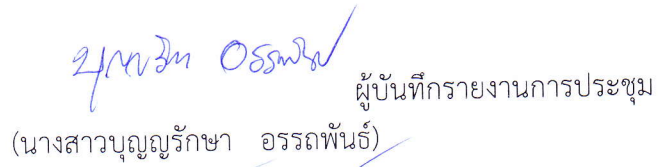 ผู้บันทึกรายงานการประชุม
(นางสาวบุญญรักษา อรรถพันธ์)